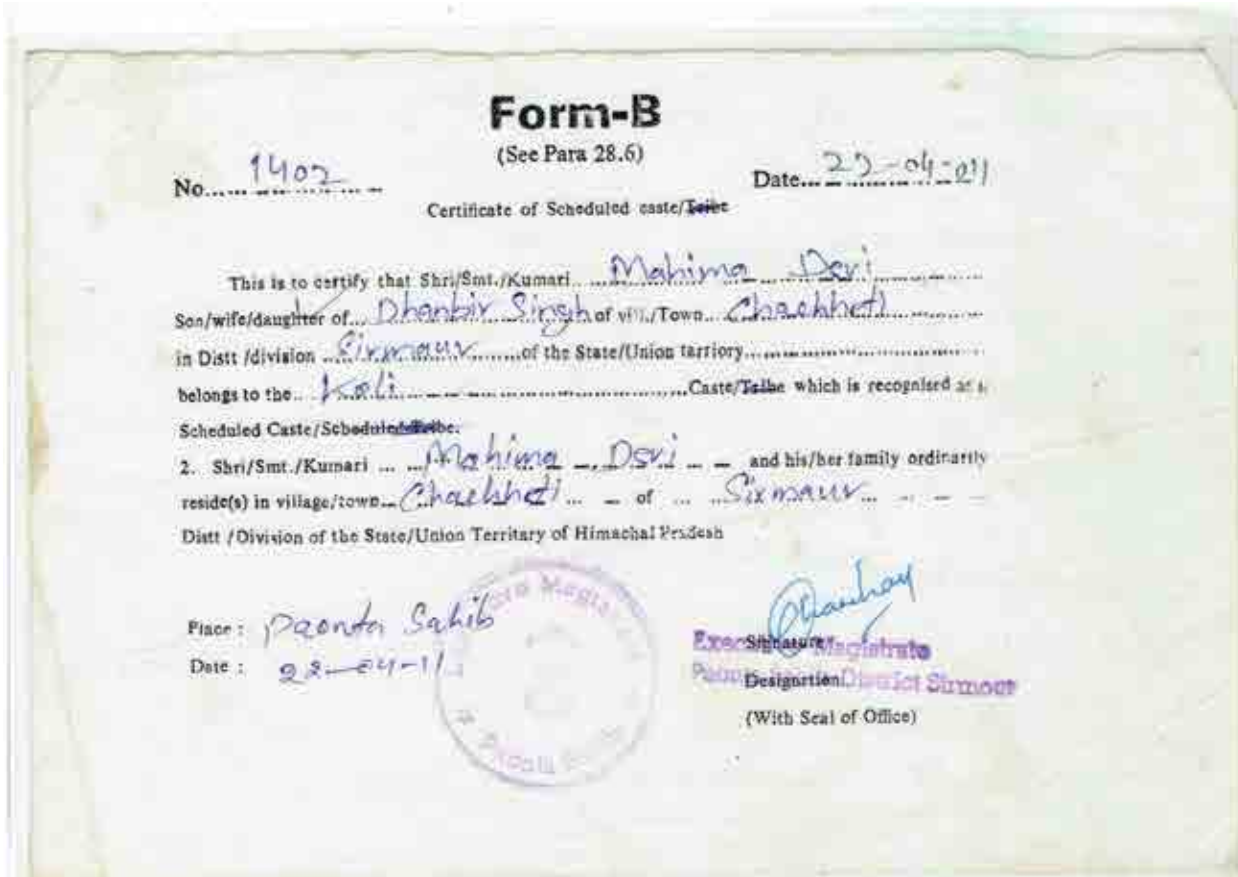 Form-B
(See Para 28.6)
No. 1402 Date 22-04-011
Certificate of Scheduled caste/Tribe
This is to certify that Shri/Smt./Kumari Mahima Devi
Son/wife/daughter of Dhanbir Singh of vill./Town Chachheti
in Distt /division Sirmaur of the State/Union tarriory
belongs to the Koli Caste/Tribe which is recognised as a
Scheduled Caste/Scheduled Tribe.
2. Shri/Smt./Kumari Mahima Devi and his/her family ordinarily
reside(s) in village/town Chachheti of Sirmaur
Distt /Division of the State/Union Territary of Himachal Pradesh
Place : Paonta Sahib
Date : 22-04-11
Signature
Magistrate
Designation District Sirmour
(With Seal of Office)